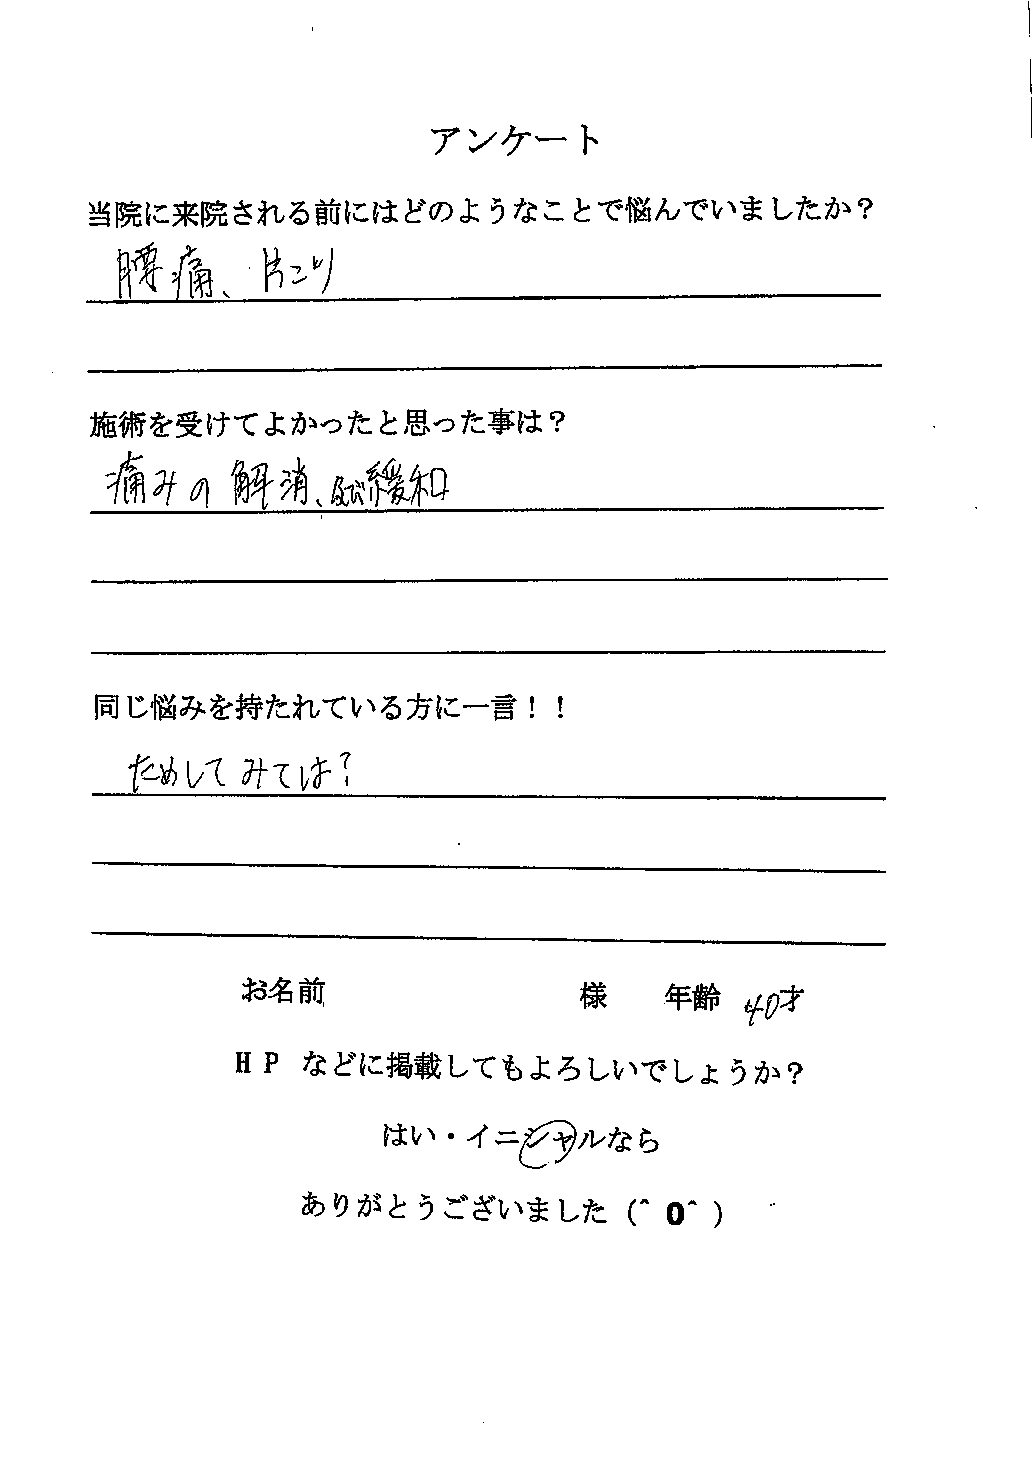 アンケート
当院に来院される前にはどのようなことで悩んでいましたか？
腰痛、片こり
施術を受けてよかったと思った事は？
痛みの解消、及び緩和
同じ悩みを持たれている方に一言！！
ためしてみては？
お名前 様 年齢 40才
ＨＰ などに掲載してもよろしいでしょうか？
はい・イニシャルなら
ありがとうございました（＾０＾）